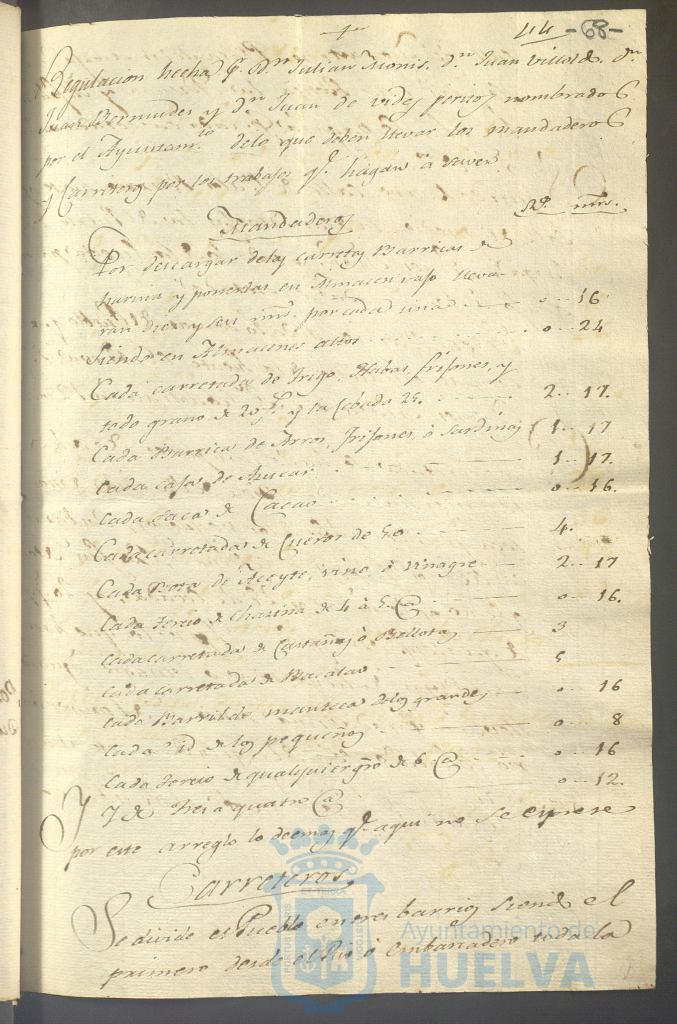 44 -68-
Regulacion hecha p.r D.n Julian Monis, d.n Juan Villold, d.n
Juan Bermudes y d.n Juan de Vides peritos nombrados
por el Ayuntam.to delo que deben llevar los mandaderos
y Carreteros por los trabajos q.e hagan á saver
Mandaderos R.s mrs.
Por descargar delas Carretas Barricas de
harina y ponerlas en Almacen vajo lleva-
ran diez y seis mrs. por cada una o.. 16
Siendo en Almacenes altos o.. 24
Cada carretada de Trigo, Habas, frisones, y
todo grano de 20 f.s y la Cebada 25. 2.. 17.
Cada Barrica de Arros, Frisones, ó Sardinas 1.. 17
Cada caja de Azucar 1.. 17.
Cada saca de Cacao o.. 16.
Cada carretada de Cueros de 50 4.
Cada Bota de Aceyte, vino ó vinagre 2.. 17
Cada tercio de Chacina de 4 á 5 @ o.. 16.
Cada carretada de Castañas ó Bellotas 3
Cada carretada de Bacalao 5
Cada Barril de manteca delos grandes o.. 16
Cada id. de los pequeños o.. 8
Cada tercio de qualquier gro de 6 @ o.. 16
Y de tres a quatro @ o.. 12.
Y por este arreglo lo demas q.e aqui no se exprese
Carreteros
Se divide el Pueblo en tres barrios siendo el
primero desde el Rio ó embarcadero toda la
Ayuntamiento de
HUELVA